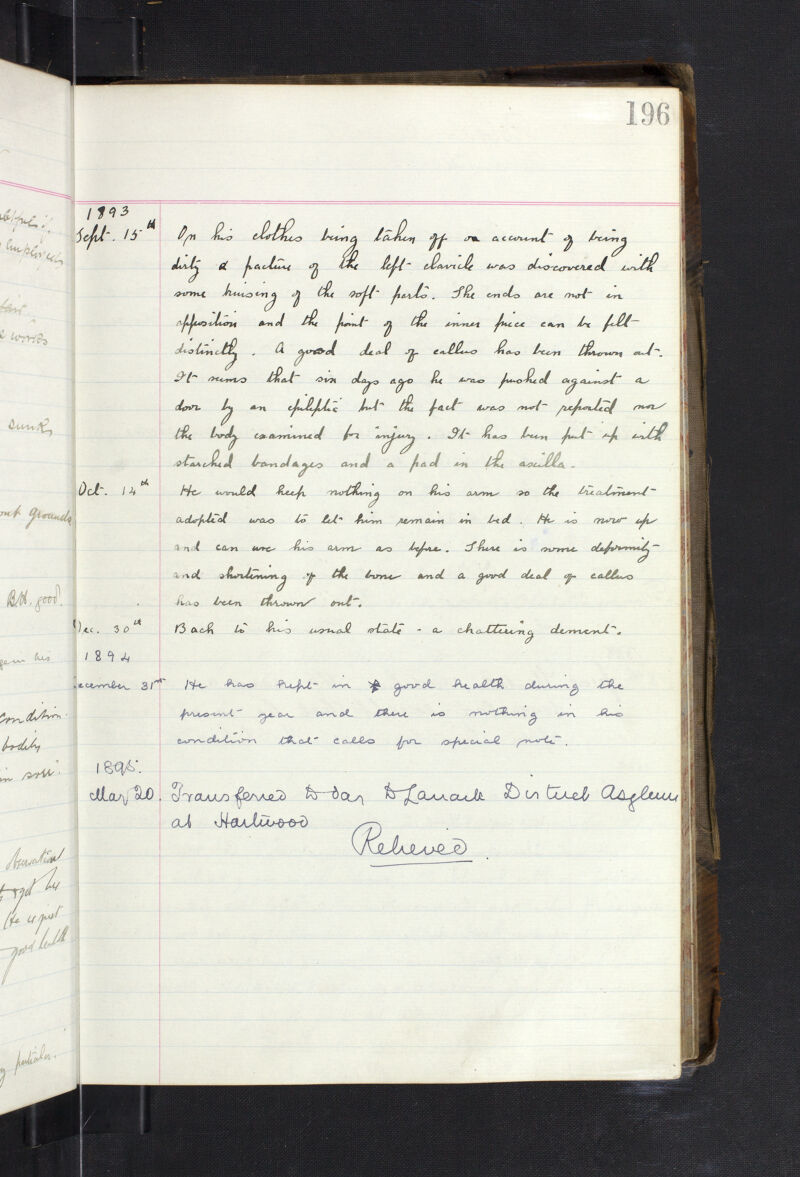 196
1893
Sept. 15th On his clothes being taken off on account of being
dirty a fracture of the left clavicle was discovered with
some bruising of the soft parts. The ends are not in
apposition and the point of the inner piece can be felt
distinctly. A good deal of callus has been thrown out.
It seems that six days ago he was pushed against a
door by an epileptic but the fact was not reported nor
the body examined for injury. It has been put up with
starched bandages and a pad in the axilla.
Oct. 14th He would keep nothing on his arm so the treatment
adopted was to let him remain in bed. He is now up
and can use his arm as before. There is some deformity
and shortening of the bone and a good deal of callus
has been thrown out.
Dec. 30th Back to his usual state - a chattering dement.
1894
December 31st He has kept in good health during the
present year and there is nothing in his
condition that calls for special note.
1895.
May 20. Transferred to day to Lanark District Asylum
at Hartwood
Relieved.
sunk
out grounds
B.H. good.
condition.
bodily
observation
good health
particular.